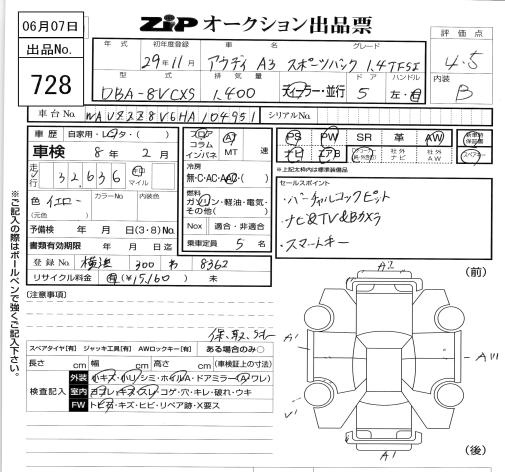 06月07日
ZIP オークション出品票
出品No.
728
評価点
4.5
内装
B
年式
初年度登録
車名
グレード
29年11月
アウディ A3 スポーツバック 1.4TFSI
型式
排気量
ドア
ハンドル
DBA-8VCXS
1,400
ディーラー・並行
5
左・右
車台No.
シリアルNo.
車歴
自家用・レンタ・( )
車検
8年2月
走行
32,636
km
マイル
色 イエロー
(元色 )
カラーNo
内装色
予備検 年 月 日(3・8)No.
書類有効期限 年 月 日迄
登録No. 横浜 300 わ 8362
リサイクル料金 有(¥15,160) 未
フロア
コラム
インパネ
AT
MT
速
冷房
無・C・AC・AAC・( )
燃料
ガソリン・軽油・電気・
その他( )
Nox 適合・非適合
乗車定員 5 名
PS
PW
SR
革
AW
ナビ
エアB
社外
ナビ
社外
AW
新車時
保証書
スペアキー
※上記太枠内は標準装備品
セールスポイント
・バーチャルコックピット
・ナビ&TV&Bカメラ
・スマートキー
※ご記入の際はボールペンで強くご記入下さい。
(注意事項)
保、取、Sキー
スペアタイヤ[有] ジャッキ工具[有] AWロックキー[有] ある場合のみ○
長さ cm 幅 cm 高さ cm (車検証上の寸法)
検査記入
外装 小キズ・小リ・シミ・ホイルA・ドアミラー(A・ワレ)
室内 ヨゴレ・キズ・スレ・コゲ・穴・キレ・破れ・ウキ
FW トビ石・キズ・ヒビ・リペア跡・X要ス
(前)
A2
A1
A111
V1
A1
(後)